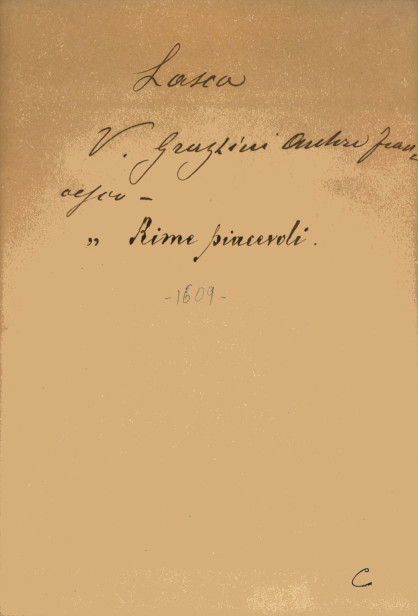 Lasca
V. Grazzini Antonfran
cesco –
„ Rime piacevoli.
- 1609 -
C